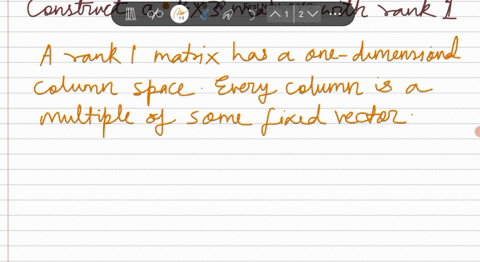 Construct a with rank 1
A rank 1 matrix has a one-dimensional
column space. Every column is a
multiple of some fixed vector.
1 2